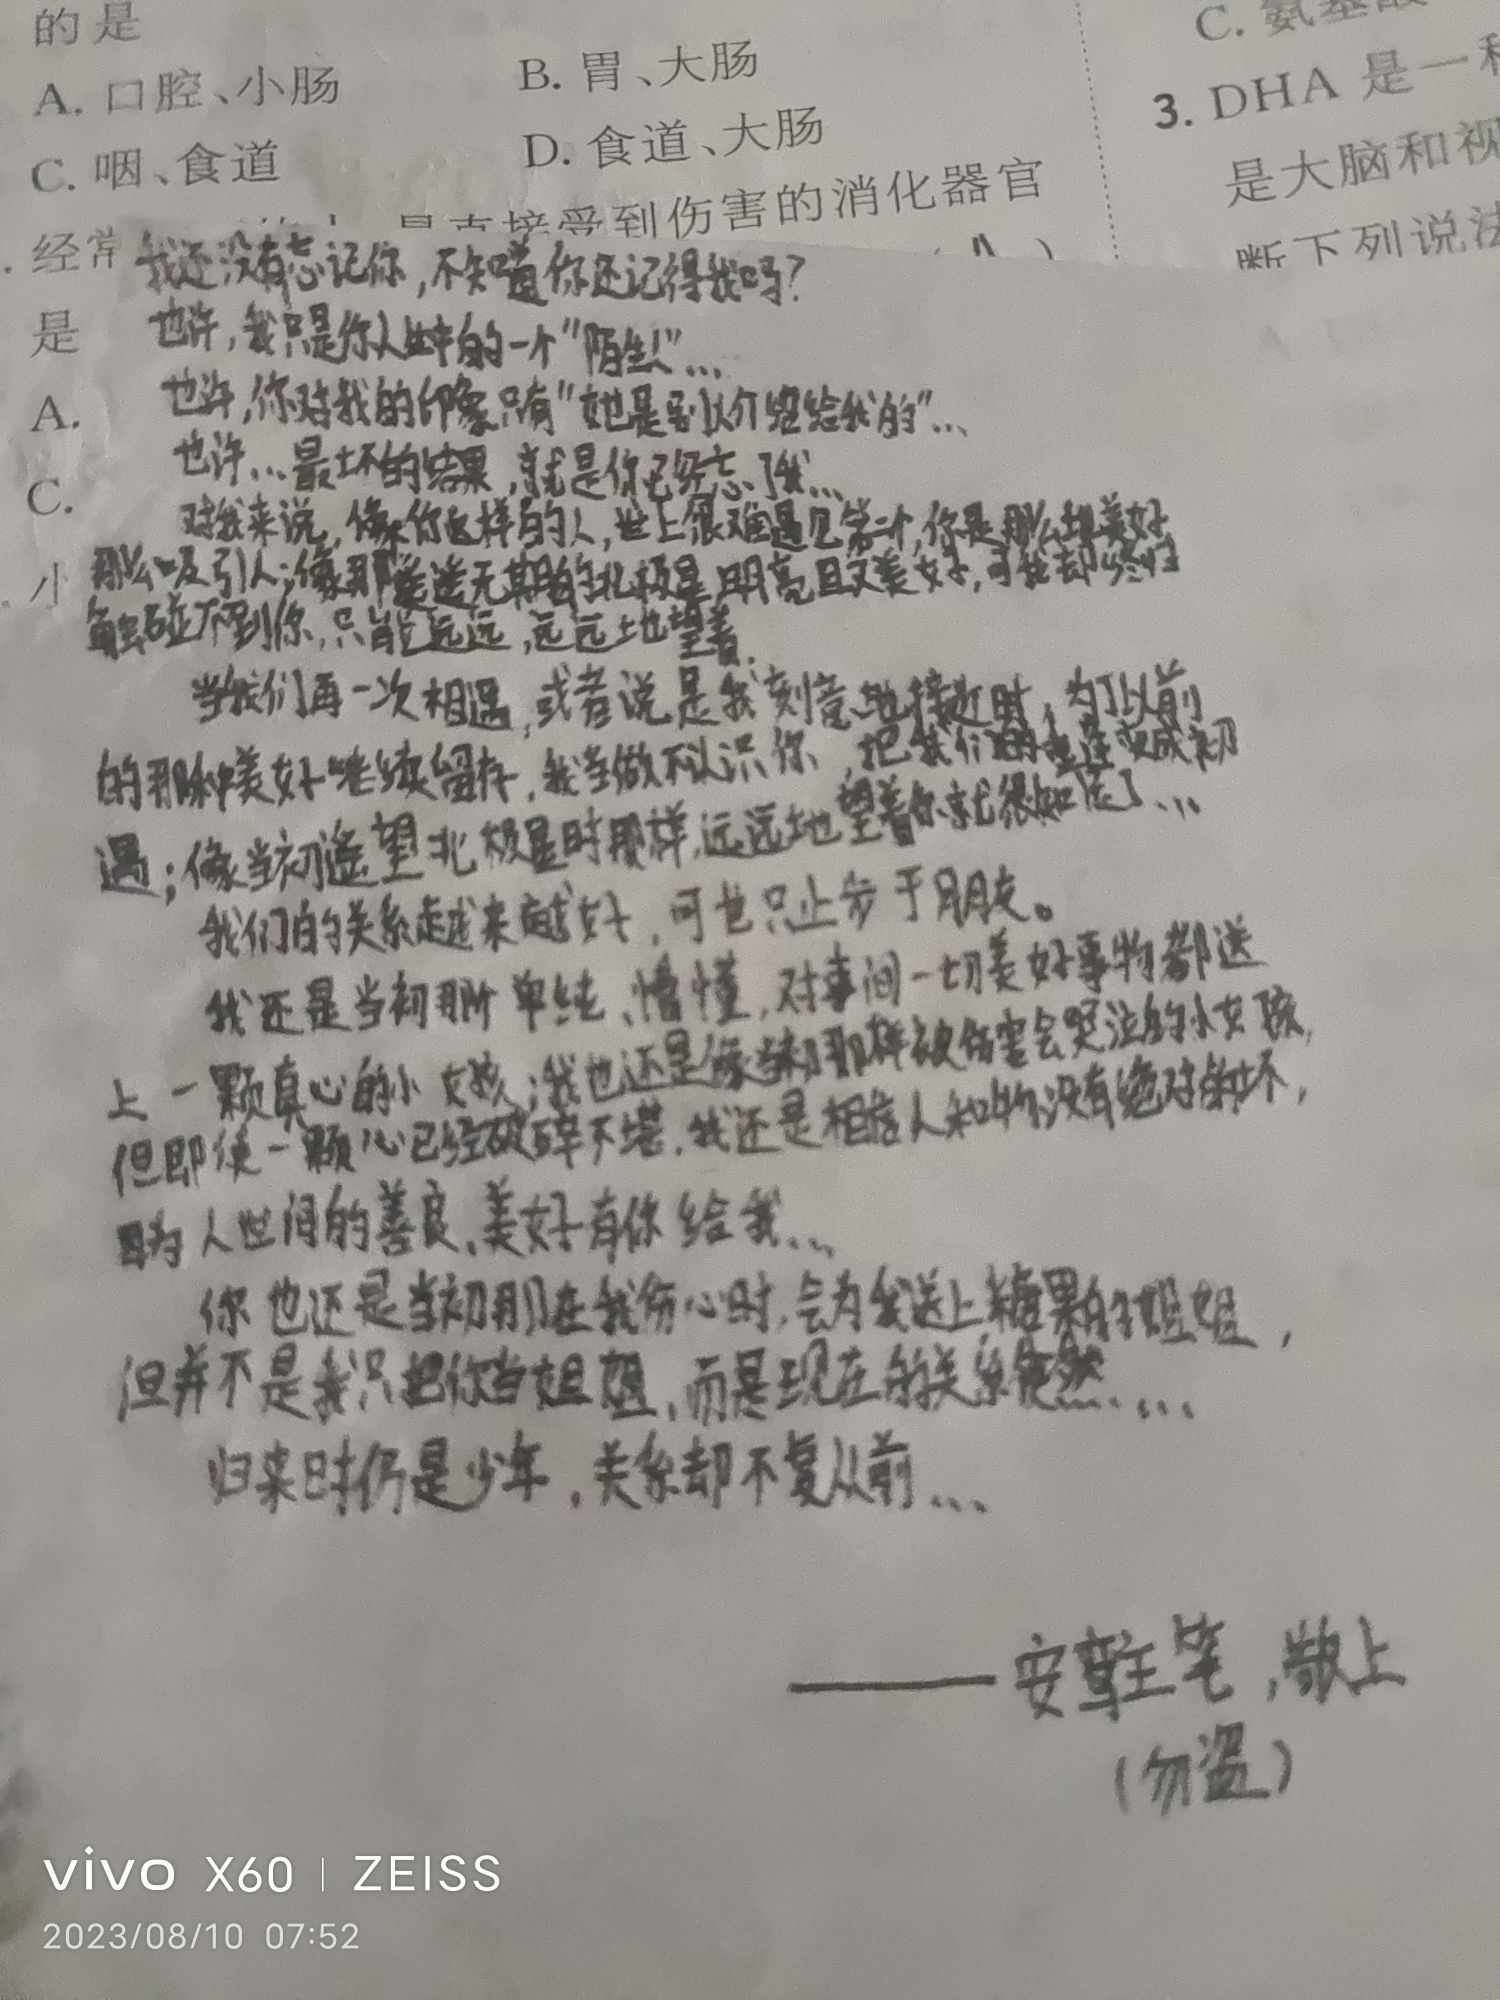 的是
A. 口腔、小肠
B. 胃、大肠
C. 咽、食道
D. 食道、大肠
经常 是直接受到伤害的消化器官
是
A.
C.
小
C. 氨基酸
3. DHA 是一种
是大脑和视
断下列说法
我还没有忘记你，不知道你还记得我吗？
也许，我只是你人生中的一个“陌生人”…
也许，你对我的印象只有“她是别人介绍给我的”…
也许…最坏的结果，就是你已经忘了我…
对我来说，像你这样的人，世上很难遇见第二个，你是那么地美好
那么吸引人；像那遥遥无期的北极星，明亮且又美好，可我却终归
触碰不到你，只能远远，远远地望着.
当我们再一次相遇，或者说是我刻意地接近时，为了以前
的那种美好继续留存，我当做不认识你，把我们的重逢变成初
遇；像当初遥望北极星时那样，远远地望着你就很知足了…
我们的关系越来越好，可也只止步于朋友。
我还是当初那个单纯、懵懂，对事间一切美好事物都送
上一颗真心的小女孩；我也还是像当初那样被伤害会哭泣的小女孩，
但即使一颗心已经破碎不堪，我还是相信人和物没有绝对的坏，
因为人世间的善良、美好有你给我…
你也还是当初那个在我伤心时，会为我送上糖果的姐姐，
但并不是我只把你当姐姐，而是现在的关系使然……
归来时仍是少年，关系却不复从前…
——安 笔，敬上
（勿盗）
vivo X60 | ZEISS
2023/08/10 07:52